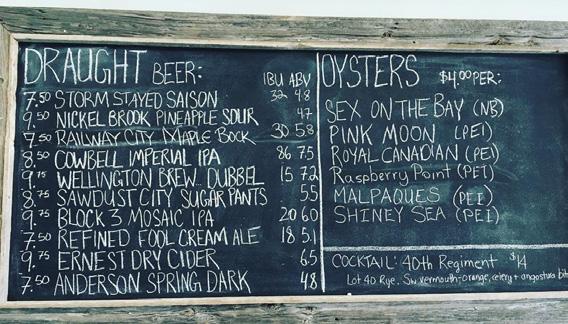 DRAUGHT BEER: IBU ABV
7.50 STORM STAYED SAISON 32 4.8
9.50 NICKEL BROOK PINEAPPLE SOUR 4.7
7.50 RAILWAY CITY MAPLE BOCK 30 5.8
8.50 COWBELL IMPERIAL IPA 86 7.5
9.75 WELLINGTON BREW.. DUBBEL 15 7.2
8.75 SAWDUST CITY SUGAR PANTS 5.5
9.75 BLOCK 3 MOSAIC IPA 20 6.0
7.50 REFINED FOOL CREAM ALE 18 5.1
9.75 ERNEST DRY CIDER 6.5
7.50 ANDERSON SPRING DARK 4.8
OYSTERS $4.00 PER:
SEX ON THE BAY (NB)
PINK MOON (PEI)
ROYAL CANADIAN (PEI)
Raspberry Point (PEI)
MALPAQUES (PEI)
SHINEY SEA (PEI)
COCKTAIL: 40th Regiment $14
Lot 40 Rye. Sw. vermouth-orange, celery + angostura bit